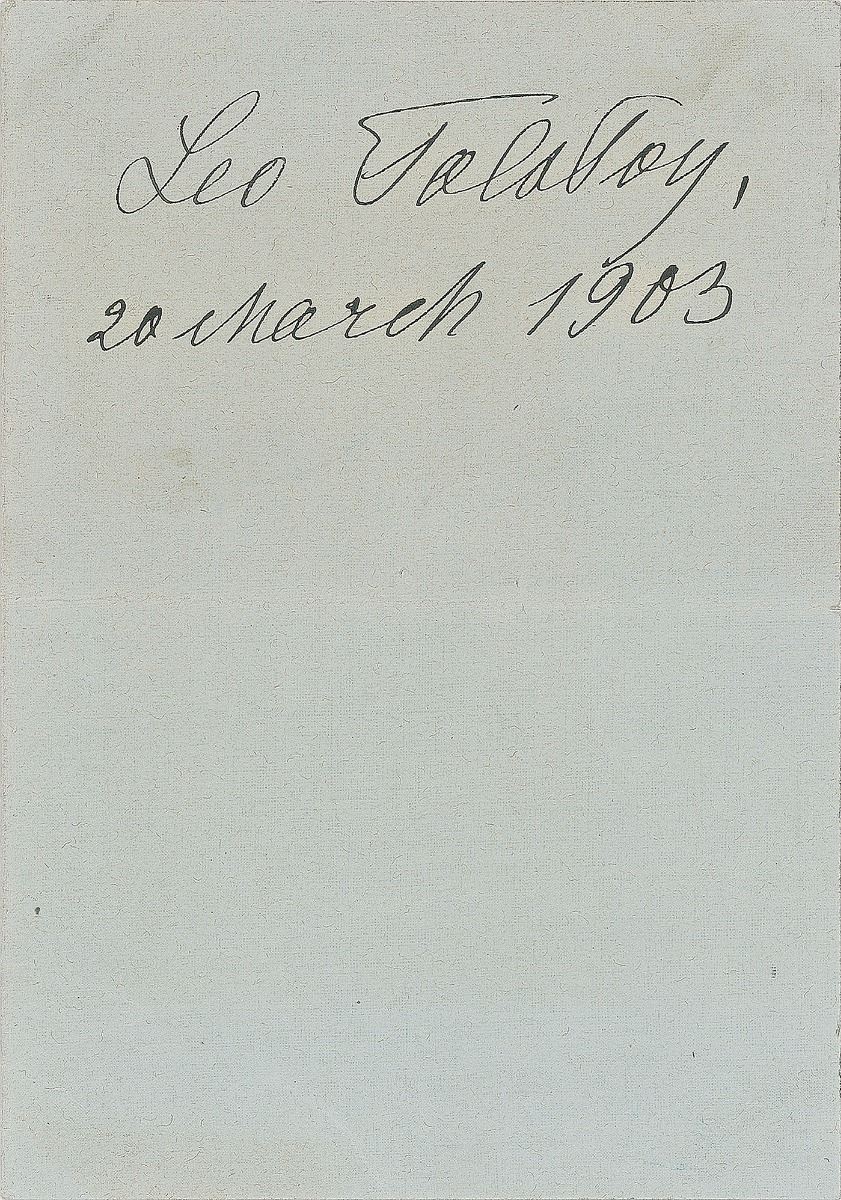 Leo Tolstoy,
20 March 1903